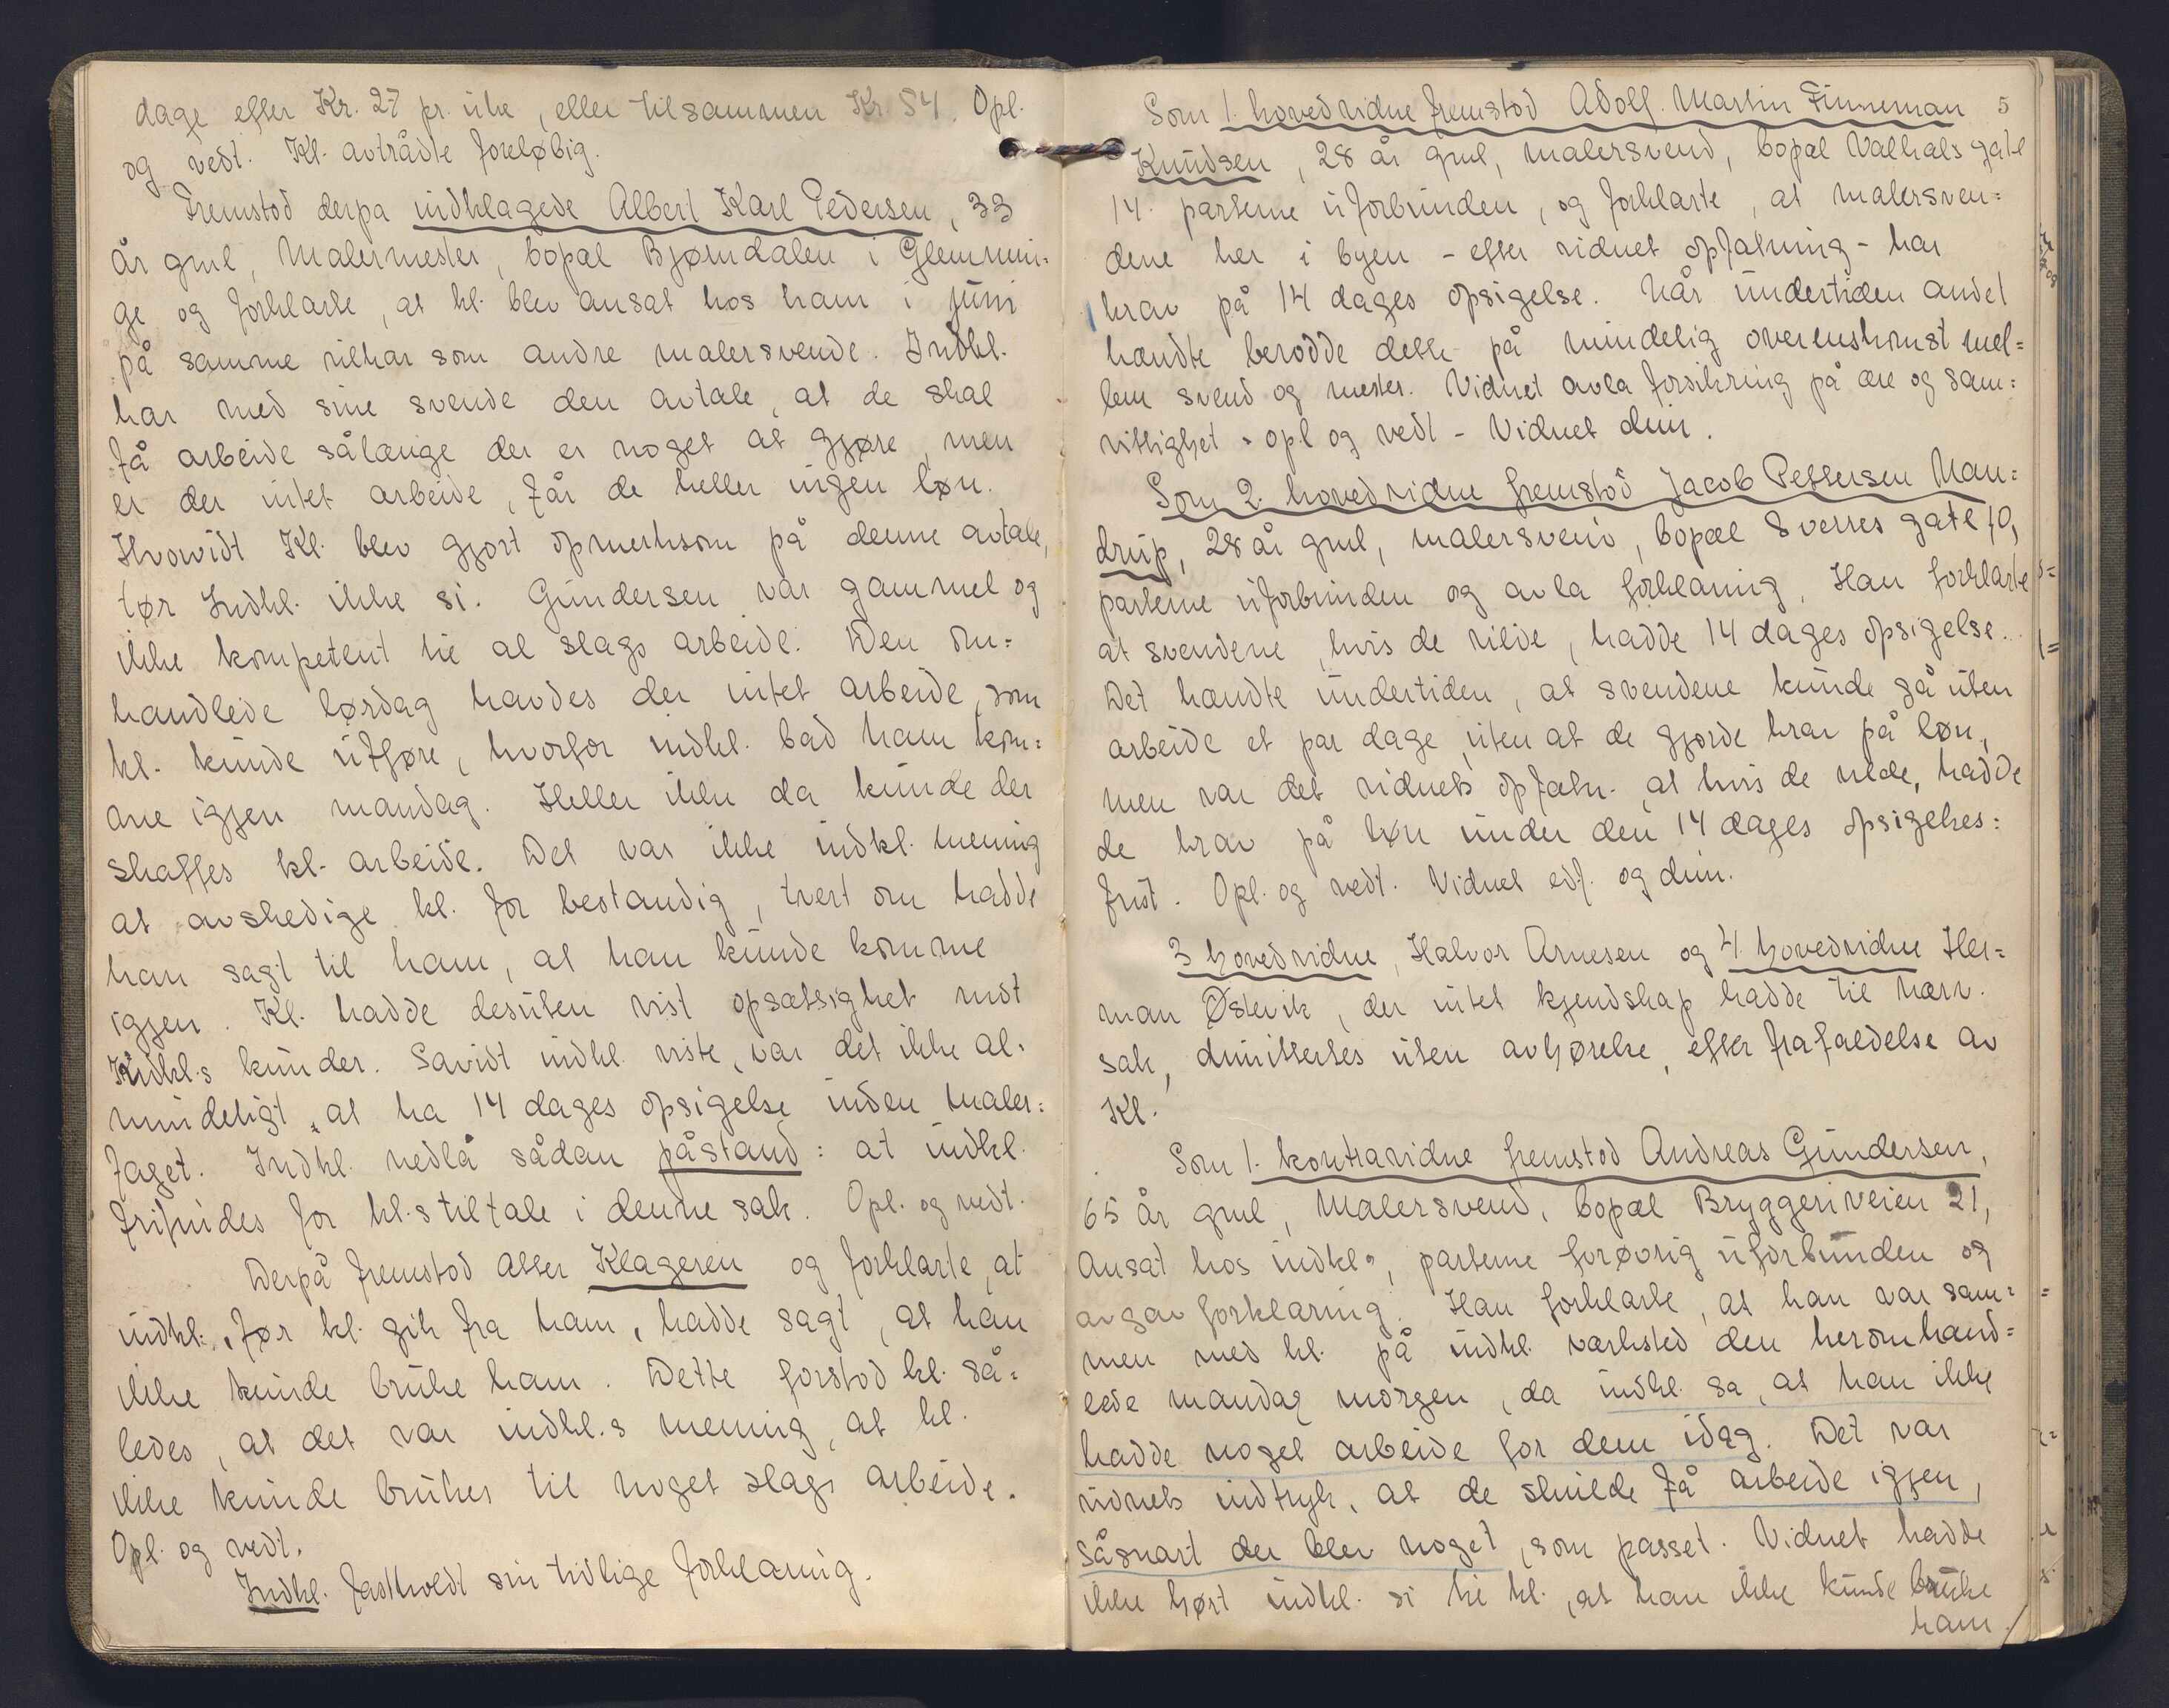 dage efter Kr. 27 pr. uke, eller tilsammen Kr. 54. Opl.
og vedt. Kl. avtrådte foreløbig.
Fremstod derpa indklagede Albert Karl Pedersen, 33
år gml, Malermester, bopæl Bjørndalen i Glemmin-
ge og forklarte, at kl. blev ansat hos ham i juni
på samme vilkår som andre malersvende. Indkl.
har med sine svende den avtale, at de skal
få arbeide sålænge der er noget at gjøre, men
er der intet arbeide, får de heller ingen løn.
Hvorvidt Kl. blev gjort opmerksom på denne avtale,
tør Indkl. ikke si. Gundersen var gammel og
ikke kompetent til al slags arbeide. Den om=
handlede lørdag havdes der intet arbeide, som
kl. kunde utføre, hvorfor indkl. bad ham kom=
me igjen mandag. Heller ikke da kunde der
skaffes kl. arbeide. Det var ikke indkl. mening
at avskedige kl. for bestandig, tvert om hadde
han sagt til ham, at han kunde komme
igjen. Kl. hadde desuten vist opsætsighet mot
Indkl.s kunder. Savidt indkl. viste, var det ikke al-
mindeligt, at ha 14 dages opsigelse inden maler=
faget. Indkl. nedla sådan påstand: at indkl.
frifindes for kl.s tiltale i denne sak. Opl. og vedt.
Derpå fremstod atter Klageren og forklarte, at
indkl., før kl. gik fra ham, hadde sagt, at han
ikke kunde bruke ham. Dette forstod kl. så=
ledes, at det var indkl.s mening, at kl.
ikke kunde brukes til noget slags arbeide.
Opl. og vedt.
Indkl. fastholdt sin tidlige forklaring.
Som 1. hovedvidne fremstod Adolf Martin Finneman 5
Knudsen, 28 år gml, malersvend, bopæl Valhals gate
14. parterne uforbunden, og forklarte, at malersven=
dene her i byen - efter vidnet opfatning - har
krav på 14 dages opsigelse. Når undertiden andet
hændte berodde dette på mindelig overenskomst mel=
lem svend og mester. Vidnet avla forsikring på ære og sam=
vittighet - opl og vedt - Vidnet dim.
Som 2. hovedvidne fremstod Jacob Pettersen Man=
drup, 28 år gml, malersvend, bopæl Sverres gate 10,
parterne uforbunden og avla forklaring. Han forklarte
at svendene, hvis de vilde, hadde 14 dages opsigelse.
Det hændte undertiden, at svendene kunde gå uten
arbeide et par dage, uten at de gjorde krav på løn,
men var det vidnets opfatn. at hvis de vilde, hadde
de krav på løn under den 14 dages opsigelses=
frist. Opl. og vedt. Vidnet edf. og dim.
3 hovedvidne, Halvor Arnesen og 4 hovedvidne Her=
man Østevik, der intet kjendskap hadde til nærv.
sak, dimitteres uten avhørelse, efter frafaldelse av
Kl.
Som 1. kontravidne fremstod Andreas Gundersen,
65 år gml, Malersvend, bopæl Bryggeriveien 21,
Ansat hos indkl., parterne forøvrig uforbunden og
avgav forklaring. Han forklarte, at han var sam=
men med kl. på indkl. værksted den heromhand=
lede mandag morgen, da indkl. sa, at han ikke
hadde noget arbeide for dem idag. Det var
vidnets indtryk, at de skulde få arbeide igjen,
såsnart der blev noget, som passet. Vidnet hadde
ikke hørt indkl. si til kl., at han ikke kunde bruke
ham.